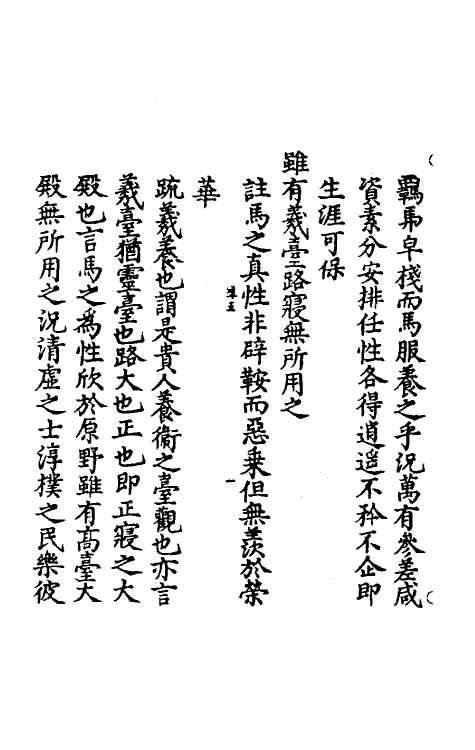 羈馽皁棧而馬服養之乎況萬有參差咸
資素分安排任性各得逍遥不矜不企即
生涯可保
雖有羲臺路寢無所用之
註馬之真性非辭鞍而惡乗但無羨於榮
華
疏羲養也謂是貴人養衛之臺觀也亦言
羲臺猶靈臺也路大也正也即正寢之大
殿也言馬之為性欣於原野雖有髙臺大
殿無所用之況清虛之士淳樸之民樂彼